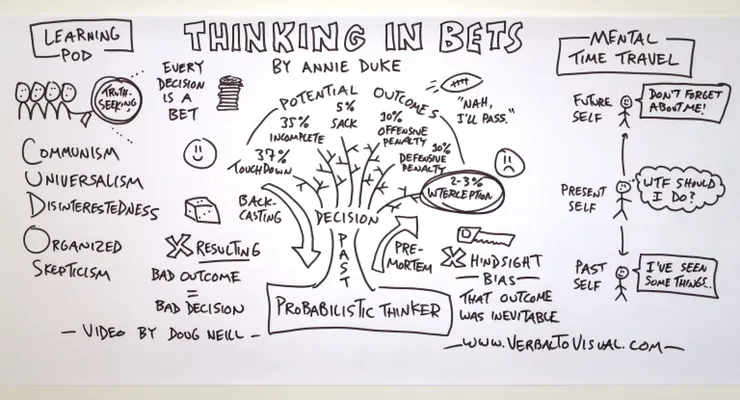 LEARNING
POD
TRUTH-
SEEKING
COMMUNISM
UNIVERSALISM
DISINTERESTEDNESS
ORGANIZED
SKEPTICISM
THINKING IN BETS
BY ANNIE DUKE
EVERY
DECISION
IS A
BET
POTENTIAL OUTCOMES
37%
TOUCHDOWN
35%
INCOMPLETE
5%
SACK
10%
OFFENSIVE
PENALTY
10%
DEFENSIVE
PENALTY
2-3%
INTERCEPTION
"NAH,
I'LL PASS."
BACK-
CASTING
DECISION
PAST
PRE-
MORTEM
PROBABILISTIC THINKER
X RESULTING
BAD OUTCOME
=
BAD DECISION
X HINDSIGHT
BIAS
THAT OUTCOME
WAS INEVITABLE
MENTAL
TIME TRAVEL
FUTURE
SELF
DON'T FORGET
ABOUT ME!
PRESENT
SELF
WTF SHOULD
I DO?
PAST
SELF
I'VE SEEN
SOME THINGS..
— VIDEO BY DOUG NEILL —
— WWW.VERBALTOVISUAL.COM —